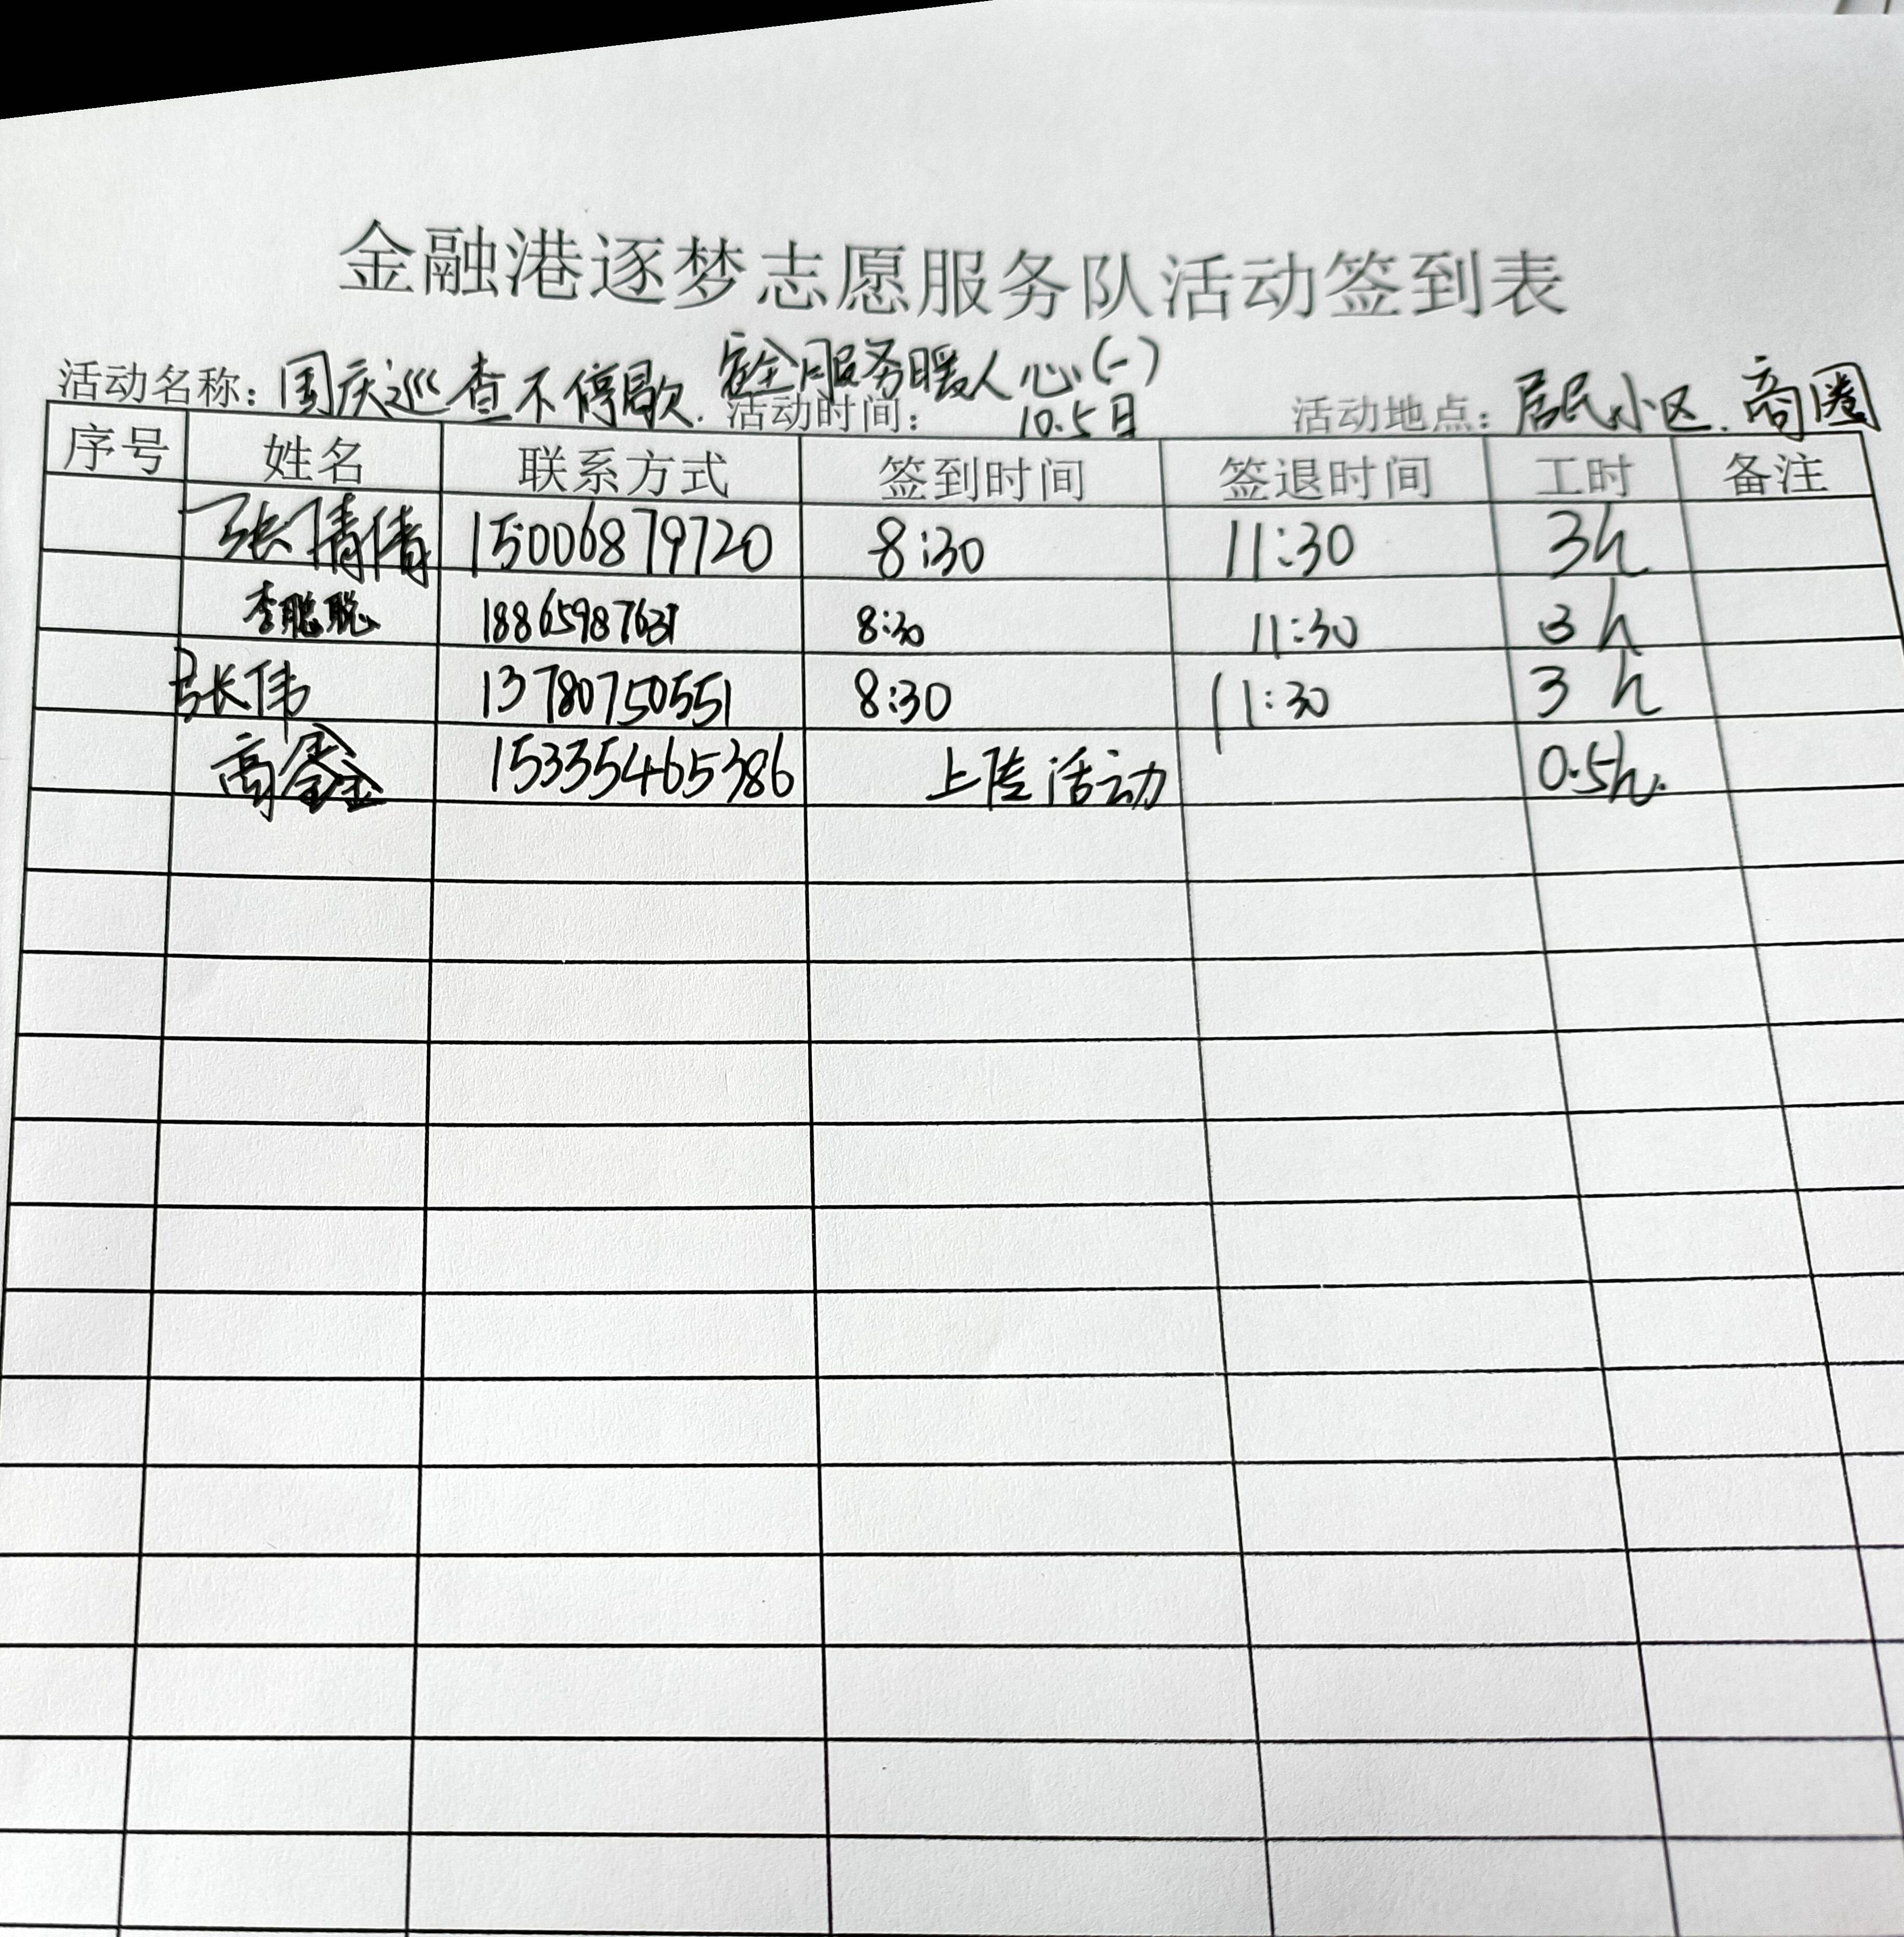 金融港逐梦志愿服务队活动签到表
活动名称：国庆巡查不停歇.安全服务暖人心(一) 活动时间： 10.5日 活动地点：居民小区.商圈
序号 姓名 联系方式 签到时间 签退时间 工时 备注
张倩倩 15006879720 8:30 11:30 3h
李聪聪 18865987631 8:30 11:30 3h
张伟 13780750551 8:30 11:30 3h
高鑫 15335465386 上传活动 0.5h.